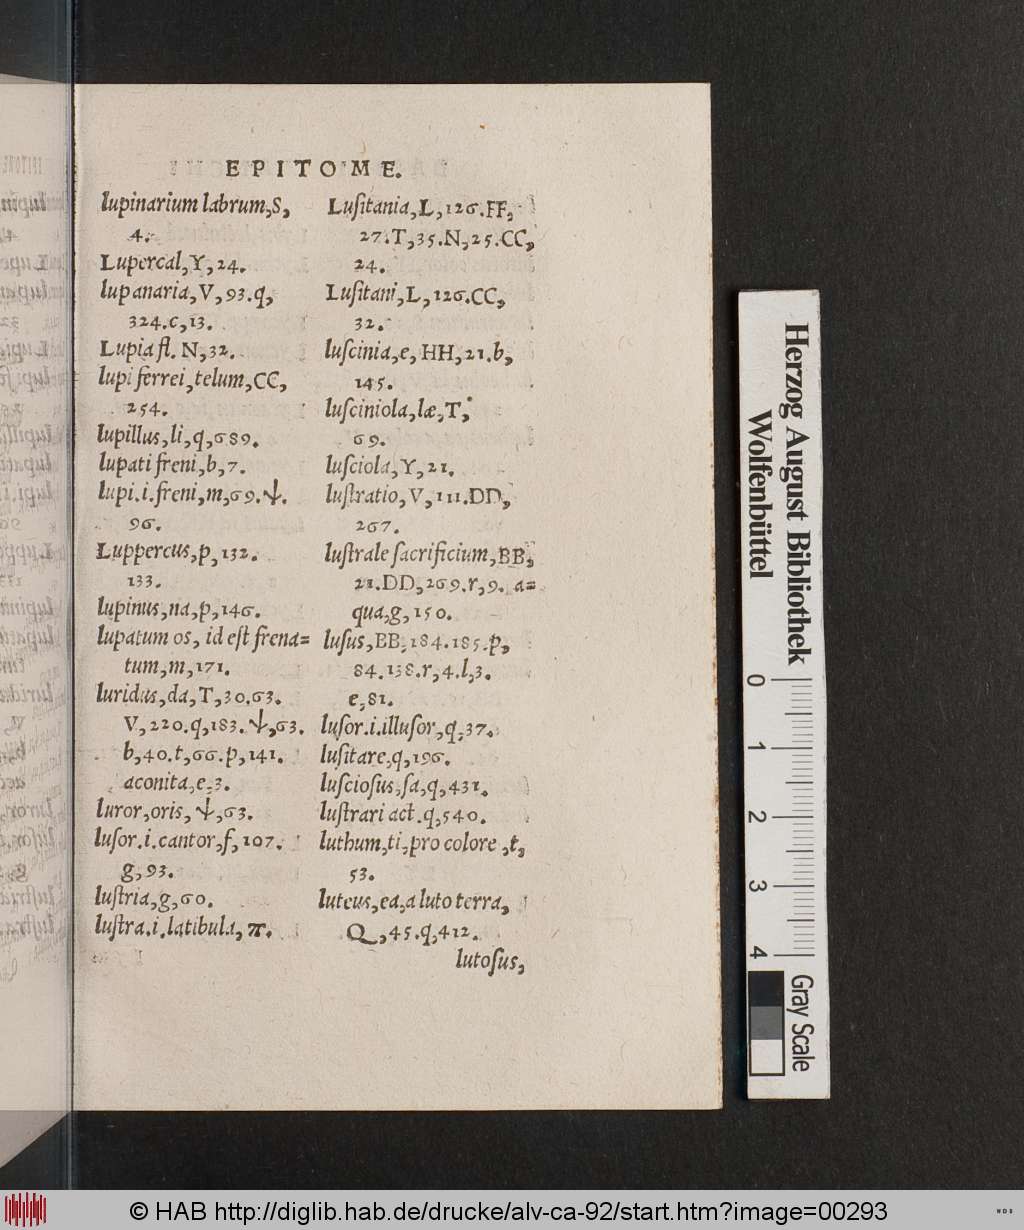 EPITOME.
lupinarium labrum,S,
4.
Lupercal,Y,24.
lupanaria,V,93.q,
324.c,13.
Lupia fl. N,32.
lupi ferrei,telum,CC,
254.
lupillus,li,q,689.
lupati freni,b,7.
lupi.i.freni,m,69.ψ.
96.
Luppercus,p,132.
133.
lupinus,na,p,146.
lupatum os, id eſt frena=
tum,m,171.
luridus,da,T,30.63.
V,220.q,183.ψ,63.
b,40.t,66.p,141.
aconita,e,3.
luror,oris,ψ,63.
luſor.i.cantor,f,107.
g,93.
luſtria,g,60.
luſtra.i.latibula,π.
Luſitania,L,126.FF,
27.T,35.N,25.CC,
24.
Luſitani,L,126.CC,
32.
luſcinia,e,HH,21.b,
145.
luſciniola,læ,T,
69.
luſciola,Y,21.
luſtratio,V,111.DD,
267.
luſtrale ſacrificium,BB,
21.DD,269.r,9. a=
qua,g,150.
luſus,BB,184.185.p,
84.138.r,4.l,3.
e,81.
luſor.i.illuſor,q,37.
luſitare,q,196.
luſcioſus,ſa,q,431.
luſtrari act.q,540.
luthum,ti,pro colore,t,
53.
luteus,ea,a luto terra,
Q,45.q,412.
lutoſus,
Herzog August Bibliothek
Wolfenbüttel
0 1 2 3 4
Gray Scale
© HAB http://diglib.hab.de/drucke/alv-ca-92/start.htm?image=00293
WDB